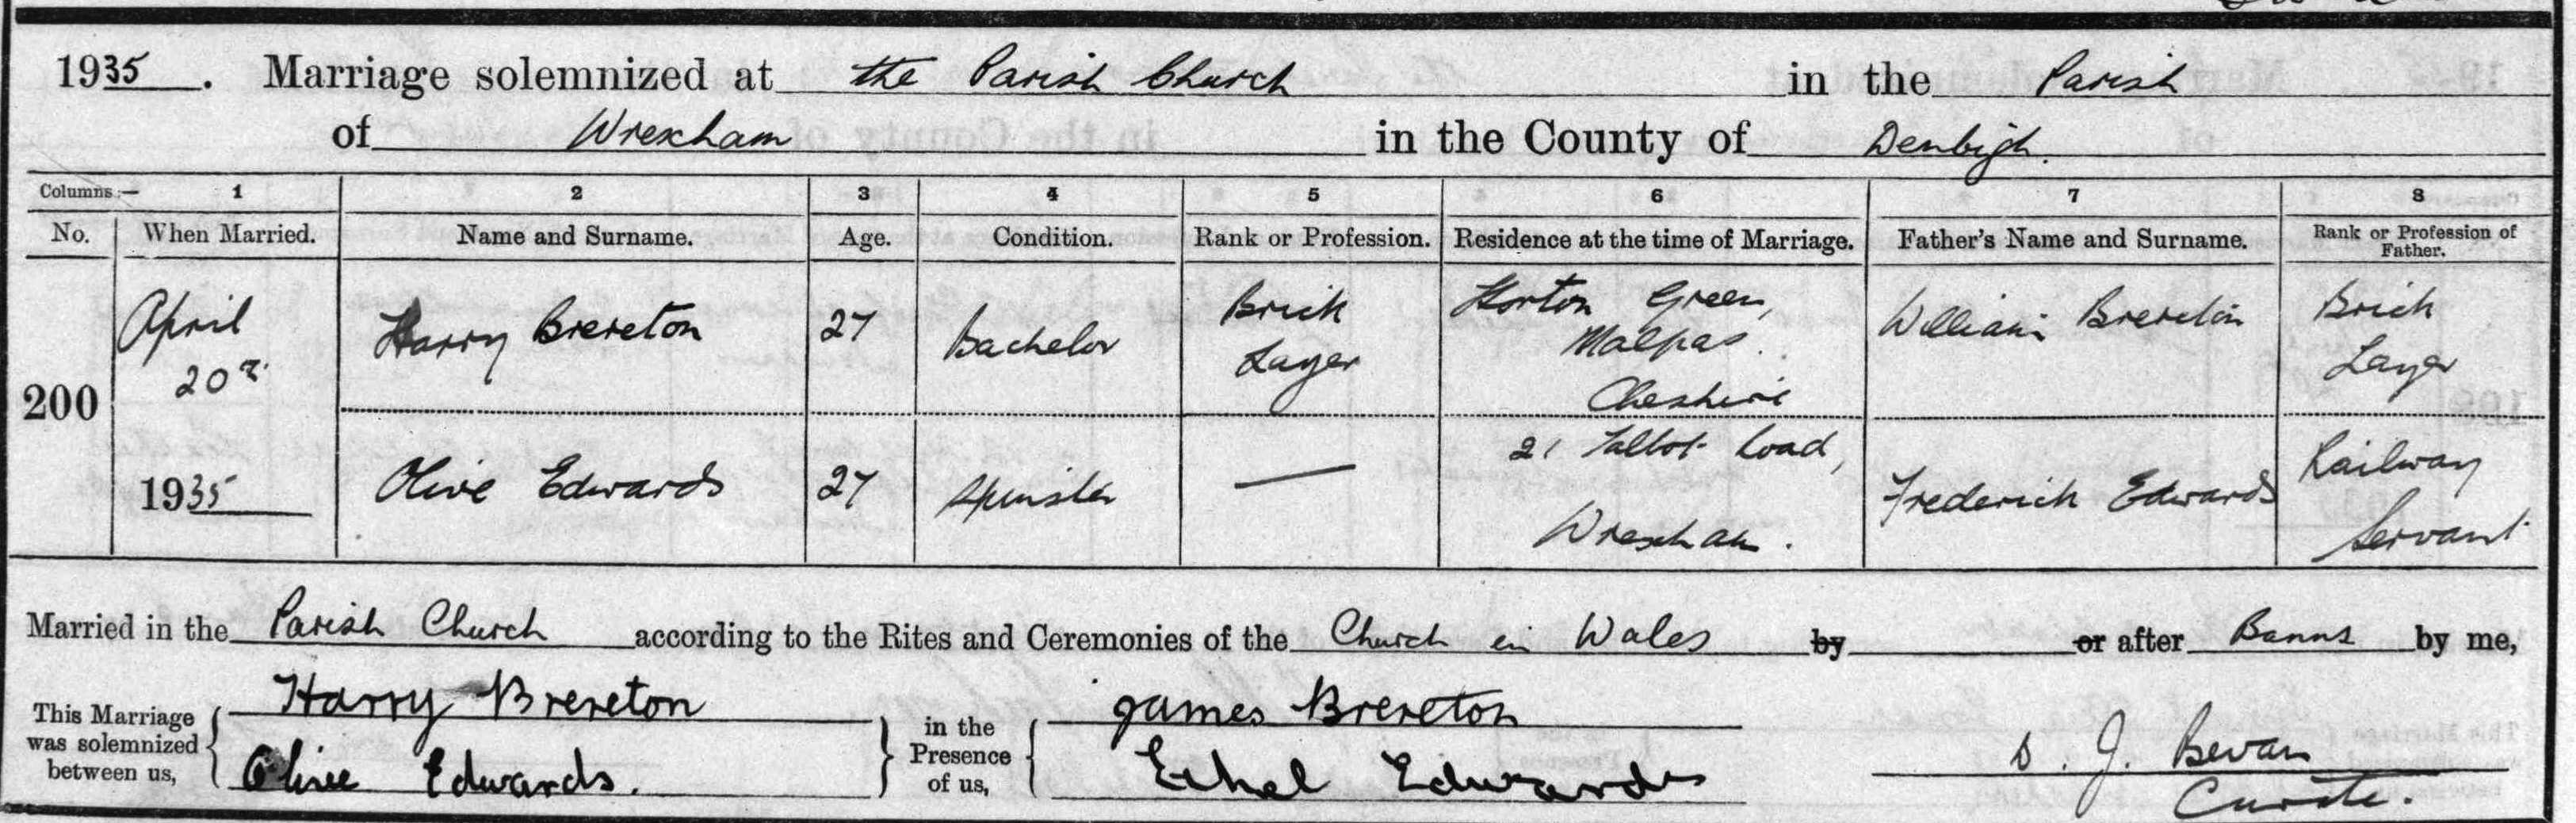 1935. Marriage solemnized at the Parish Church in the Parish
of Wrexham in the County of Denbigh.
Columns:— 1 2 3 4 5 6 7 8
No. When Married. Name and Surname. Age. Condition. Rank or Profession. Residence at the time of Marriage. Father's Name and Surname. Rank or Profession of Father.
200
April
20
1935
Harry Brereton 27 Bachelor
Brick
Layer
Horton Green,
Malpas.
Cheshire
William Brereton
Brick
Layer
Olive Edwards 27 Spinster —
21 Talbot Road,
Wrexham.
Frederick Edwards
Railway
Servant
Married in the Parish Church according to the Rites and Ceremonies of the Church in Wales by or after Banns by me,
This Marriage
was solemnized
between us,
Harry Brereton
Olive Edwards.
in the
Presence
of us,
James Brereton
Ethel Edwards
D. J. Bevan
Curate.